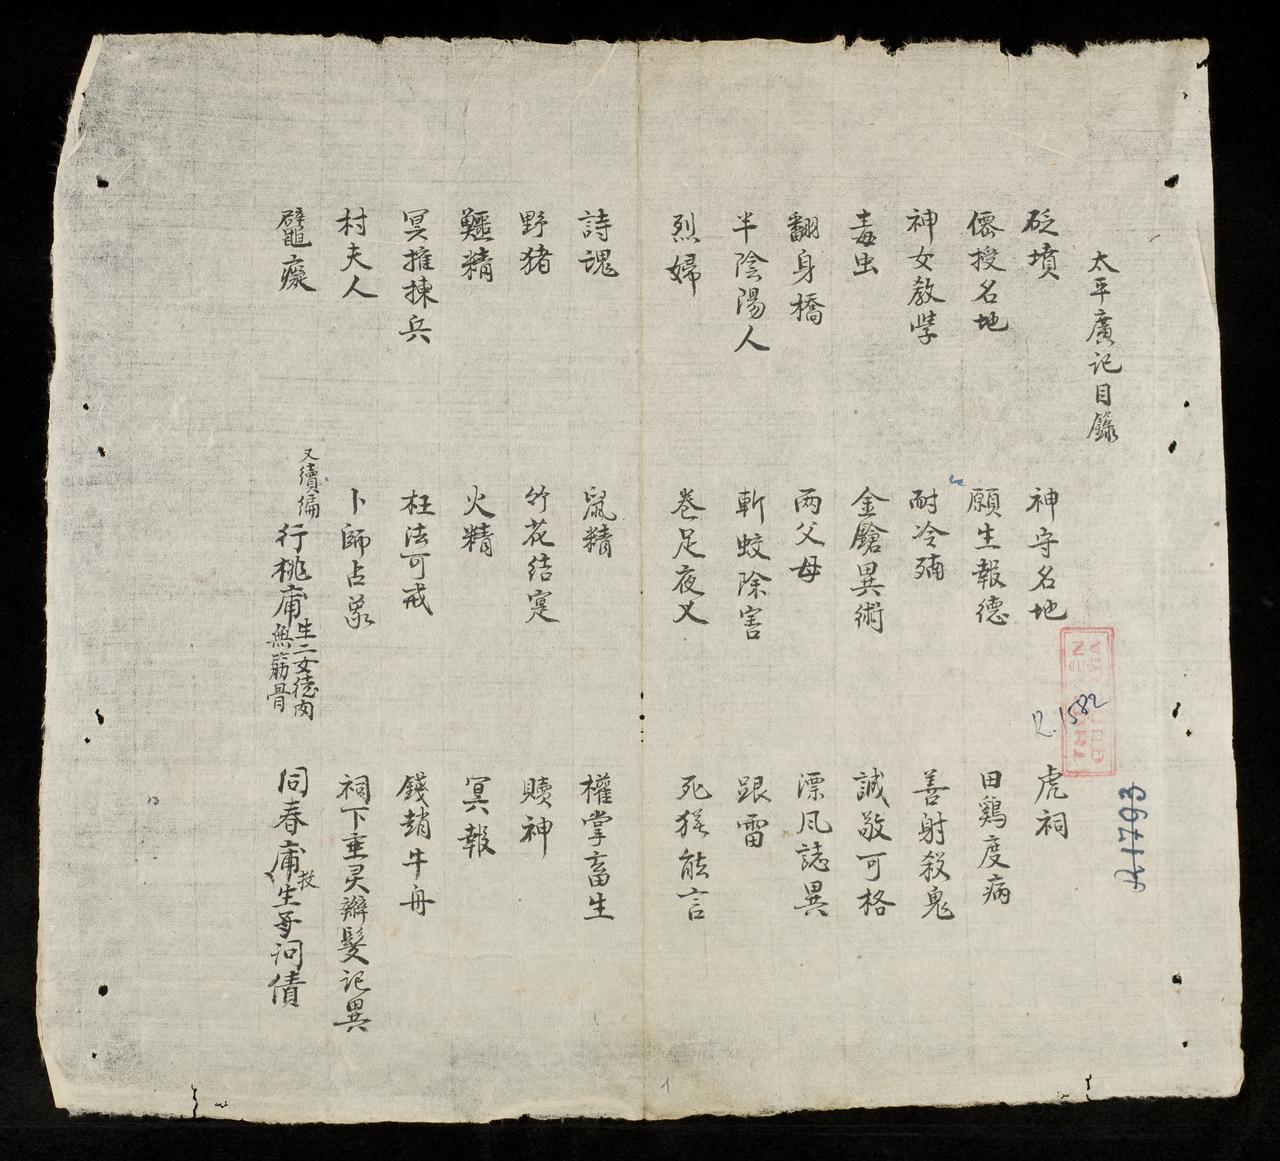 太平廣記目錄
砭墳 神守名地 虎祠
僊授名地 願生報德 田鷄度病
神女教學 耐冷 善射殺鬼
毒虫 金鎗異術 誠敬可格
翻身橋 両父母 漂風誌異
半陰陽人 斬蛟除害 跟雷
烈婦 卷足夜叉 死猴能言
詩魂 鼠精 權掌畜生
野猪 竹花結寔 贖神
鱷精 火精 冥報
冥擁揀兵 枉法可戒 錢趙牛舟
村夫人 卜師占 祠下垂灵辮髮記異
鼊癡 又續編 行桃庯生二女徒肉無筋骨 同春庯技生子问債
R.1582
A 1793